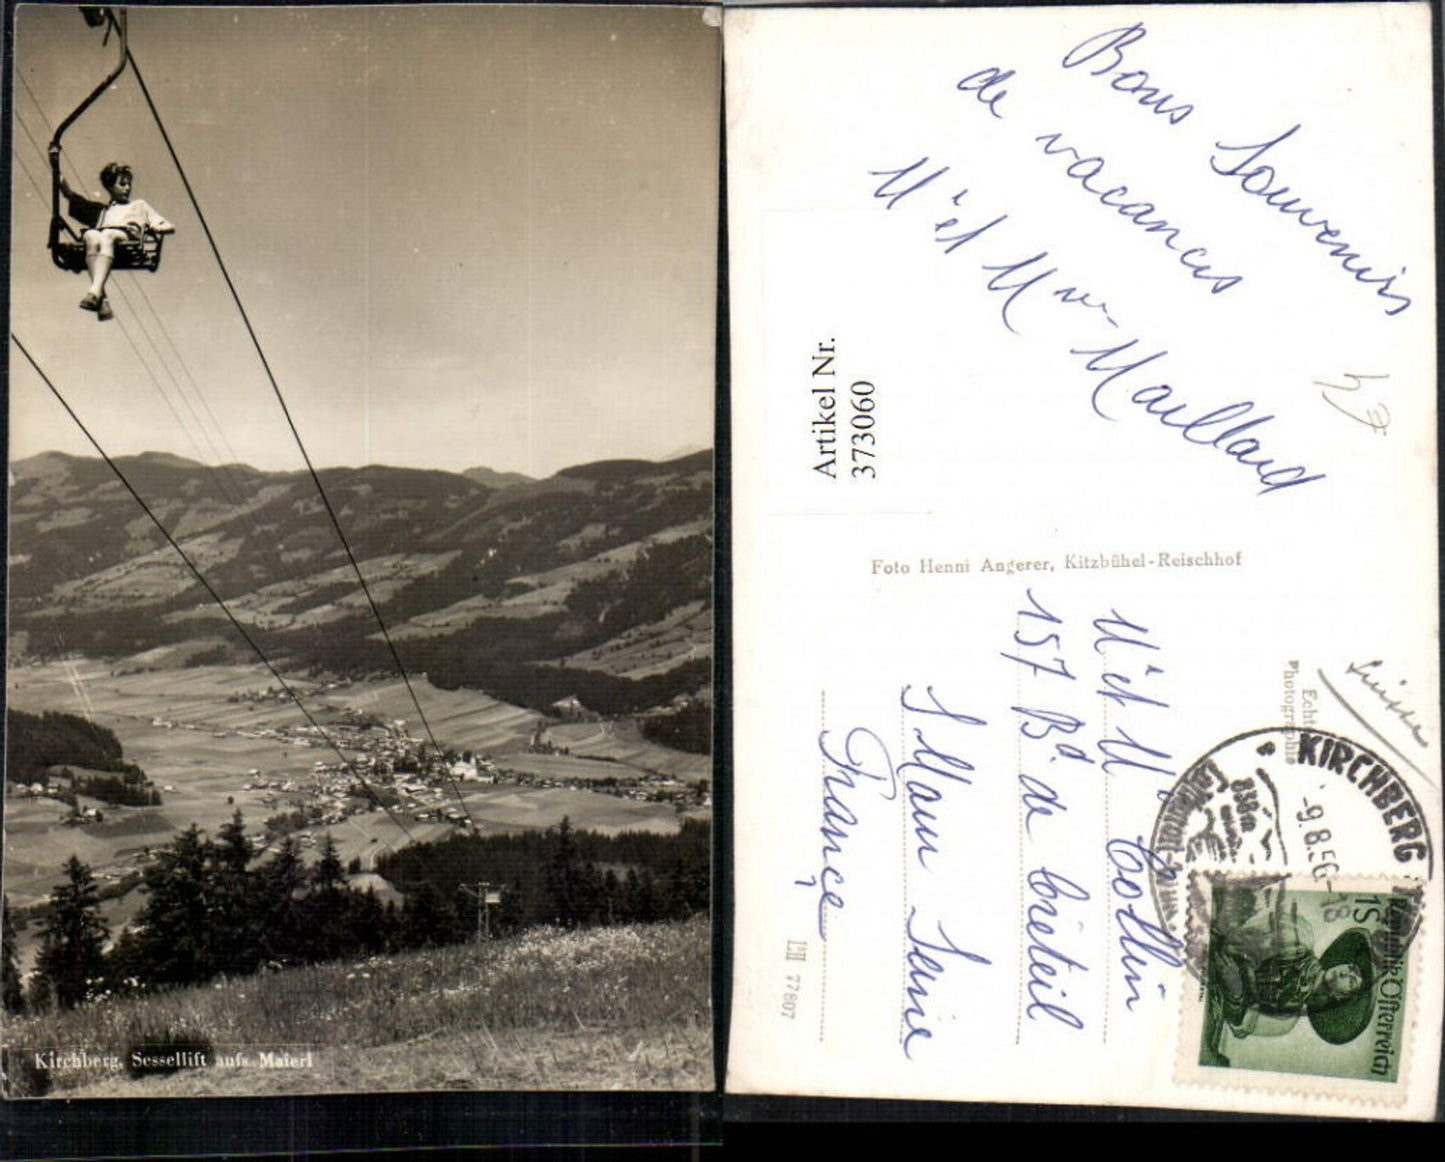 Kirchberg, Sessellift aufs Maierl
Bons Souvenirs
de vacances
Mr et Mme Maillard
Artikel Nr.
373060
Foto Henni Angerer, Kitzbühel-Reischhof
Echte
Photographie
KIRCHBERG
-9.8.56-18
1S
Republik Österreich
Mr et M Collin
157 Bd de Créteil
S Maur Seine
France
77807